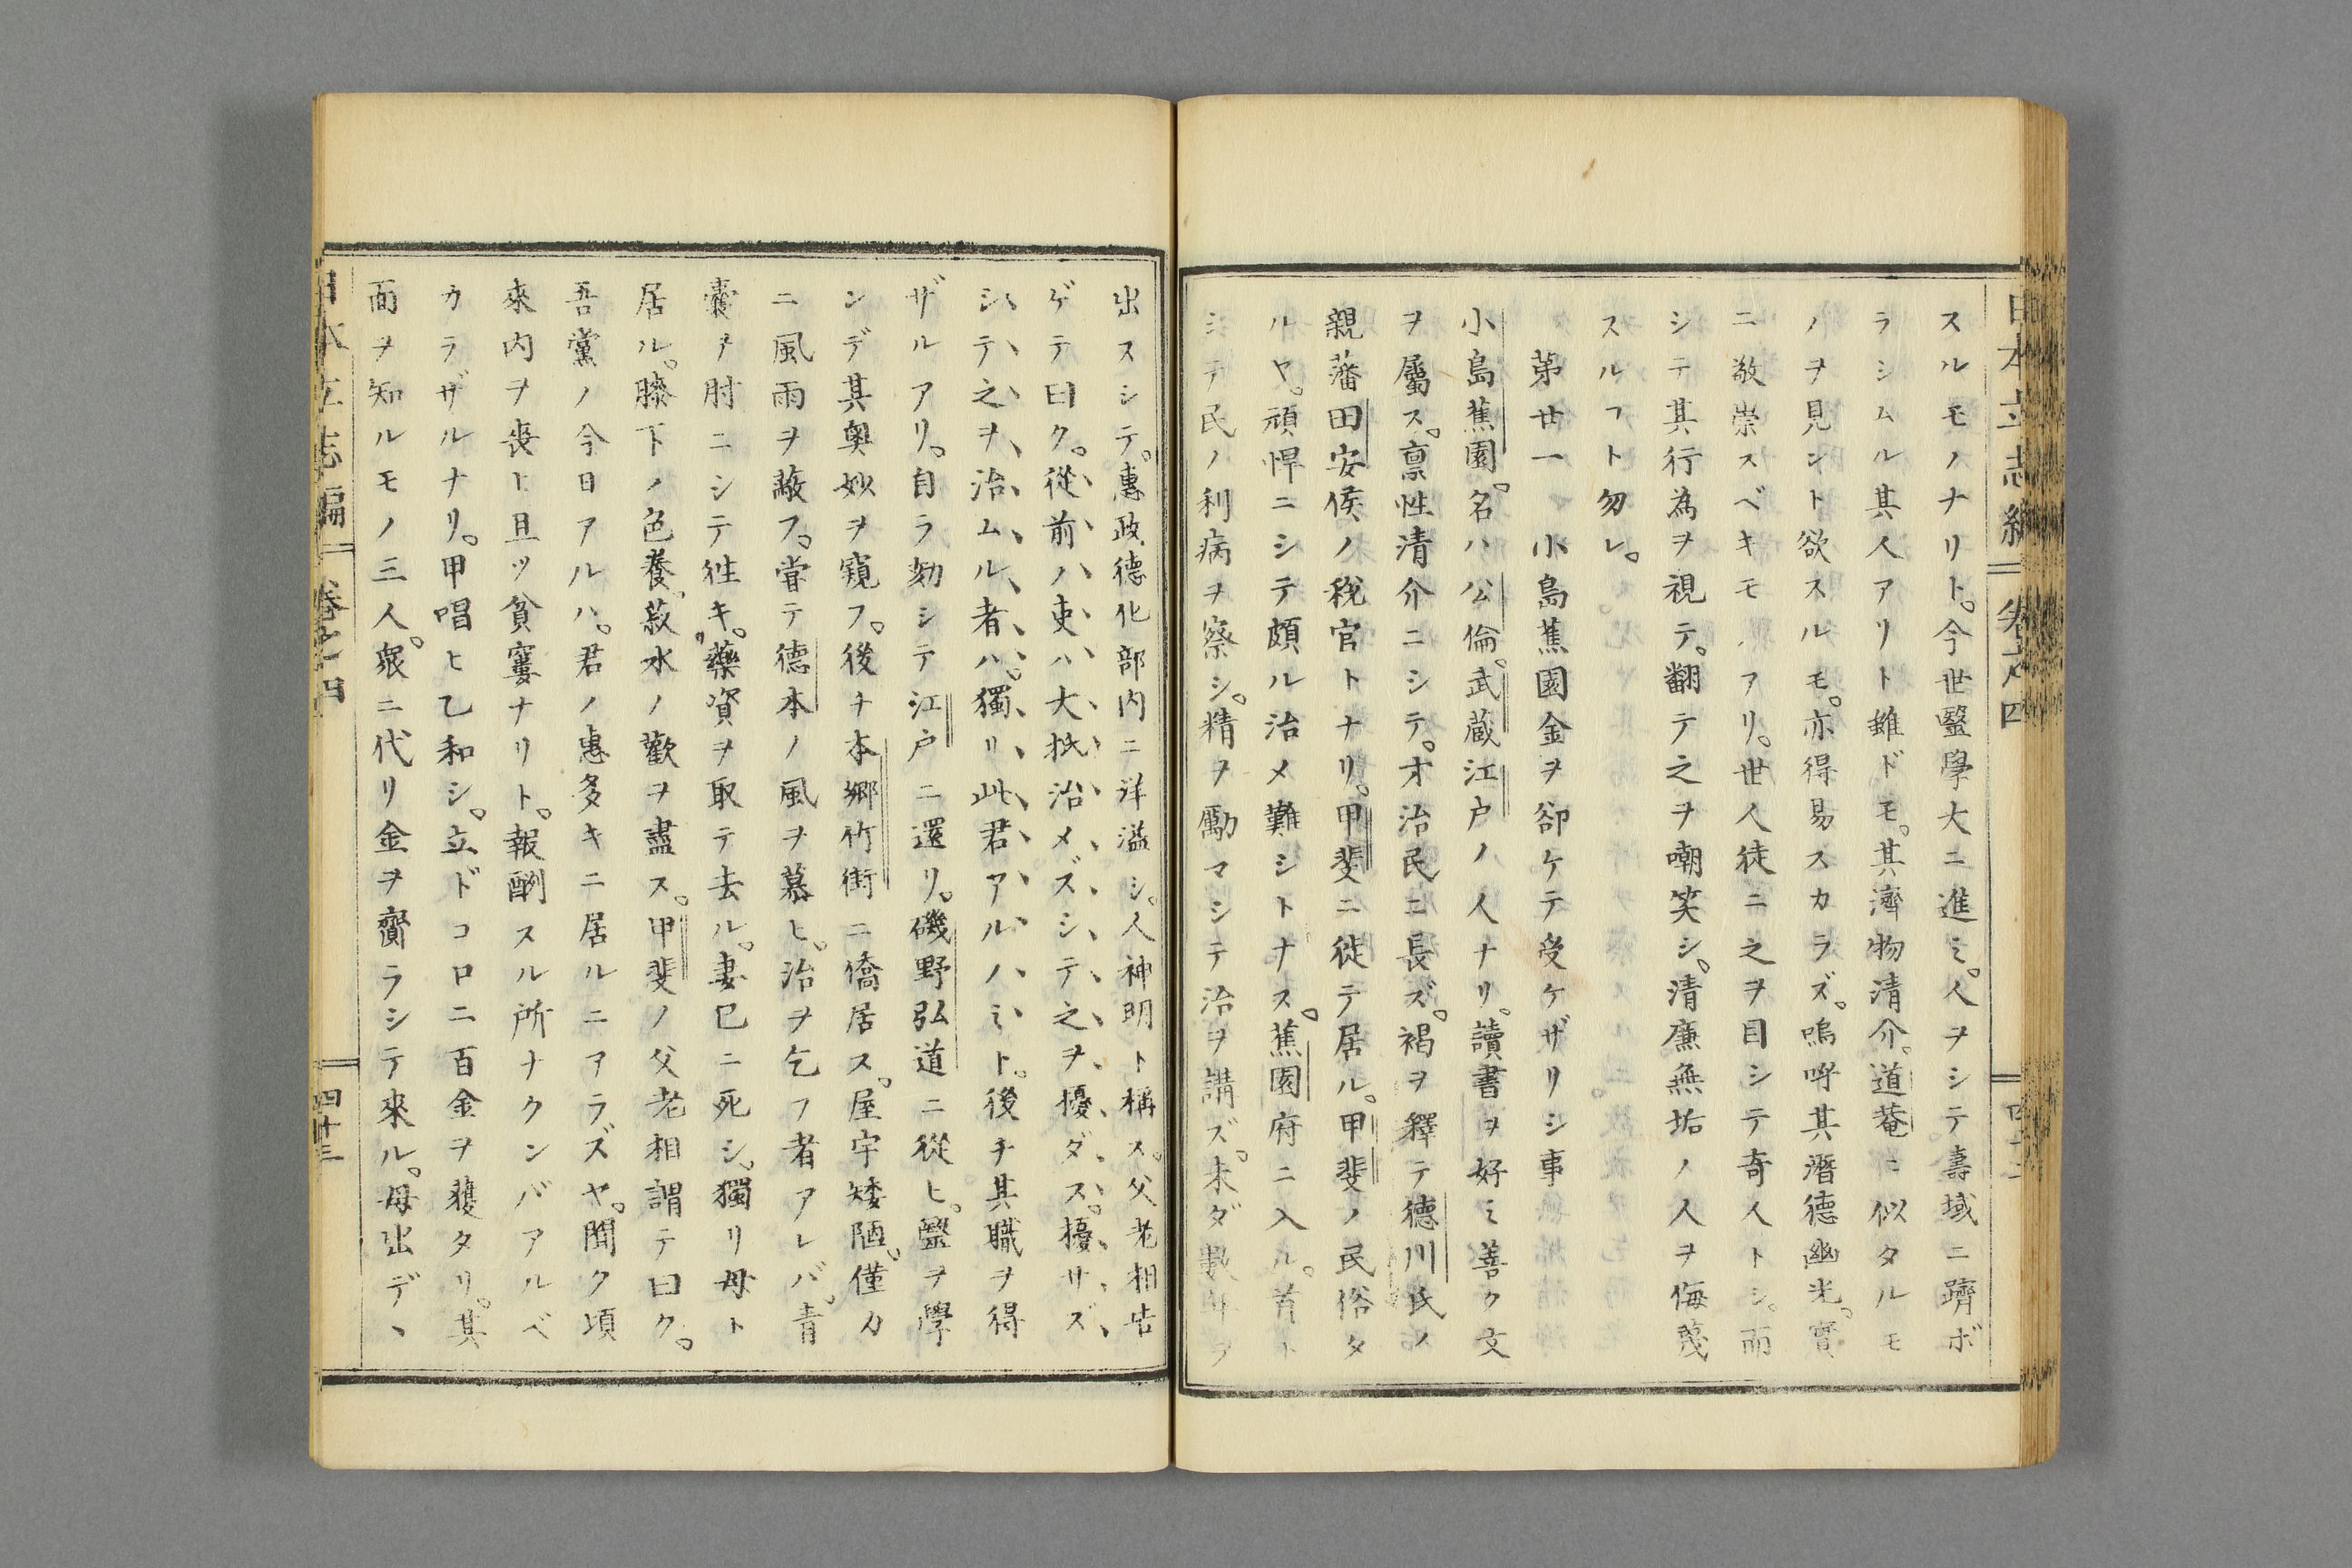 日本立志編 卷之四 四十二
スルモノナリト。今世醫學大ニ進ミ。人ヲシテ壽域ニ躋ボ
ラシムル其人アリト雖ドモ。其濟物清介。道菴ニ似タルモ
ノヲ見ント欲スルモ。亦得易スカラズ。嗚呼其潛德幽光。實
ニ敬崇スベキモノアリ。世人徒ニ之ヲ目シテ奇人トシ。而
シテ其行為ヲ視テ。翻テ之ヲ嘲笑シ。清廉無垢ノ人ヲ侮蔑
スルフト勿レ。
第廿一 小島蕉園金ヲ卻ケテ受ケザリシ事
小島蕉園。名ハ公倫。武蔵江戸ノ人ナリ。讀書ヲ好ミ善ク文
ヲ屬ス。禀性清介ニシテ。才治民ニ長ズ。褐ヲ釋テ德川氏ノ
親藩田安侯ノ税官トナリ。甲斐ニ徙テ居ル。甲斐ノ民俗タ
ルヤ。頑悍ニシテ頗ル治メ難シトナス。蕉園府ニ入ル。首ト
シテ民ノ利病ヲ察シ。精ヲ勵マシテ治ヲ講ズ。未ダ數年ヲ
出スシテ。惠政德化部内ニ洋溢シ。人神明ト稱ス。父老相告
ゲテ曰ク。從前ノ吏ハ大抵治メズシテ之ヲ擾ダス。擾サズ
シテ之ヲ治ムル者ハ。獨リ此君アルノミト。後チ其職ヲ得
ザルアリ。自ラ劾シテ江戸ニ還リ。磯野弘道ニ從ヒ。醫ヲ學
ンデ其奥妙ヲ窺フ。後チ本郷竹街ニ僑居ス。屋宇矮陋。僅カ
ニ風雨ヲ蔽フ。甞テ德本ノ風ヲ慕ヒ。治ヲ乞フ者アレバ。青
嚢ヲ肘ニシテ徃キ。藥資ヲ取テ去ル。妻已ニ死シ。獨リ母ト
居ル。膝下ノ色養。菽水ノ歡ヲ盡ス。甲斐ノ父老相謂テ曰ク。
吾黨ノ今日アルハ。君ノ惠多キニ居ルニアラズヤ。聞ク頃
來内ヲ喪ヒ且ツ貧窶ナリト。報酬スル所ナクンバアルベ
カラザルナリ。甲唱ヒ乙和シ。立ドコロニ百金ヲ獲タリ。其
面ヲ知ルモノ三人。衆ニ代リ金ヲ齎ラシテ來ル。母出デヽ
日本立志編 卷之四 四十三